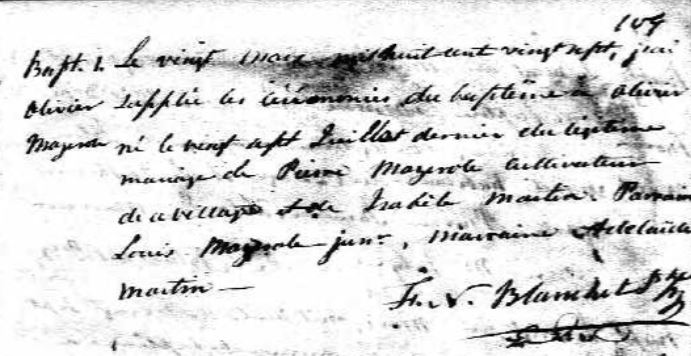 109
Bapt. 1. Le vingt mars mil huit cent vingt sept, j'ai
Olivier supplée les cérémonies du baptème à olivier
Mazerole né le vingt sept Juillet dernier du légitime
mariage de Pierre Mazerole cultivateur
de ce village & de Isabèle Martin. Parrain
Louis Mazerole junr, marraine Adelaide
Martin —
Fr. N. Blanchet Ptre